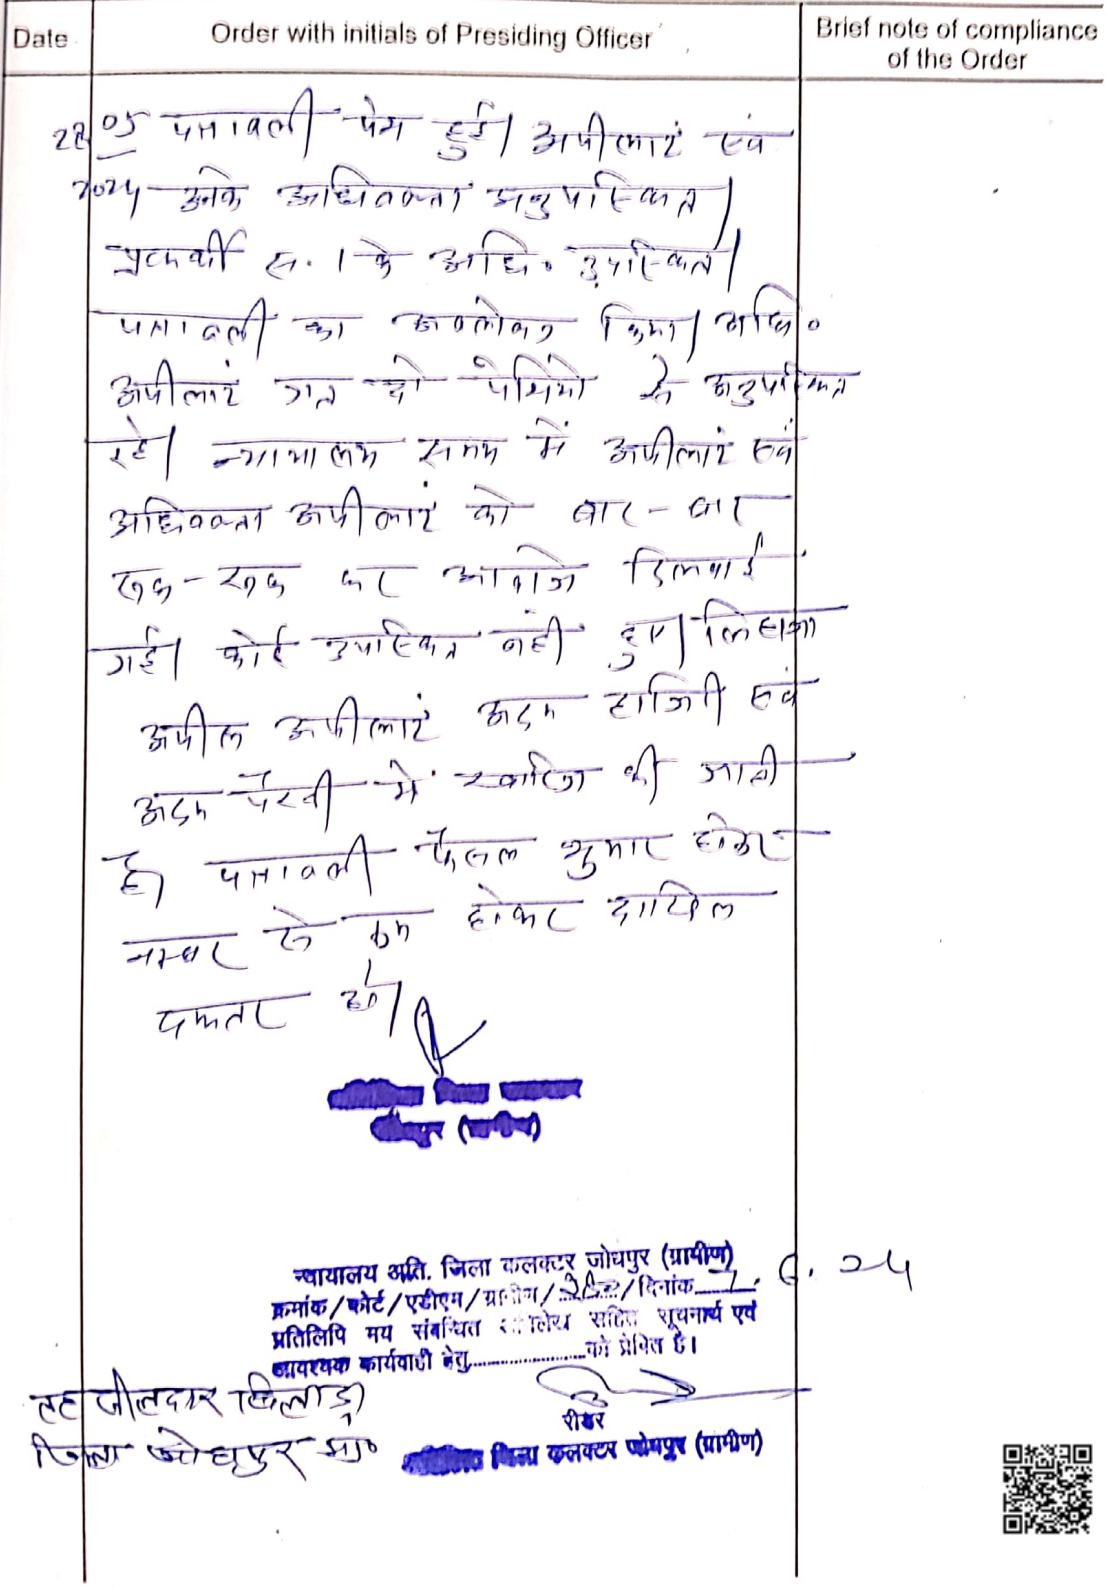 Date
Order with initials of Presiding Officer
Brief note of compliance
of the Order
28/05 पत्रावली पेश हुई। अपीलांट एवं
2024 उनके अधिवक्ता अनुपस्थित।
प्रत्यर्थी स. 1 के अधि० उपस्थित।
पत्रावली का अवलोकन किया। अधि०
अपीलांट गत दो पेशियों से अनुपस्थित
रहे। न्यायालय समय में अपीलांट एवं
अधिवक्ता अपीलांट को बार-बार
रूक-रूक कर आवाजे दिलवाई
गई। कोई उपस्थित नहीं हुए। लिहाजा
अपील अपीलांट अदम हाजिरी एवं
अदम पैरवी में खारिज की जाती
है। पत्रावली फैसल शुमार होकर
नम्बर से कम होकर दाखिल
दफ्तर हो।
न्यायालय अति. जिला कलक्टर जोधपुर (ग्रामीण)
क्रमांक/कोर्ट/एडीएम/ग्रामीण/ /दिनांक 7.6.24
प्रतिलिपि मय संबन्धित अभिलेख सहित सूचनार्थ एवं
आवश्यक कार्यवाही हेतु....................को प्रेषित है।
तहसीलदार बिलाड़ा
जिला जोधपुर ग्रा०
रीडर
जिला कलक्टर जोधपुर (ग्रामीण)